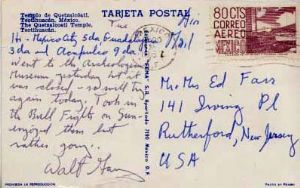 Templo de Quetzalcóatl.
Teotihuacán, México.
The Quetzalcoatl Temple,
Teotihuacán.
TARJETA POSTAL
80 CTS
CORREO
AEREO
MEXICO
Air
Mail
Hi - Mexico City 5 da Guadalajara
3 da and Acapulco 9 da
Went to the Archeological
Museum yesterday but it
was closed - will try
again today. Took in
the Bull Fights on Sun -
enjoyed them but
rather gory.
Walt
Mr + Mrs Ed Fars
141 Irving Pl
Rutherford, New Jersey
USA
PROHIBIDA LA REPRODUCCION